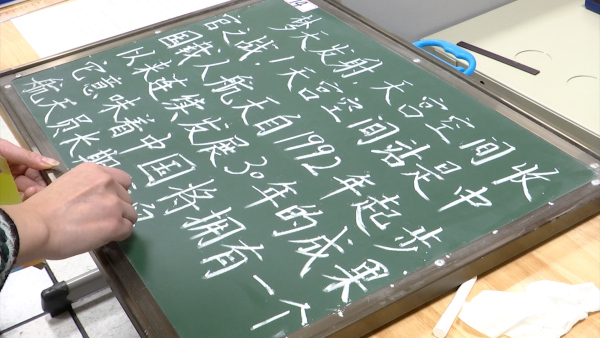 14
梦天发射,天宫空间收
官之战!天宫空间站是中
国载人航天自1992年起步
以来连续发展30年的成果
它意味着中国将拥有一个
航天员长期